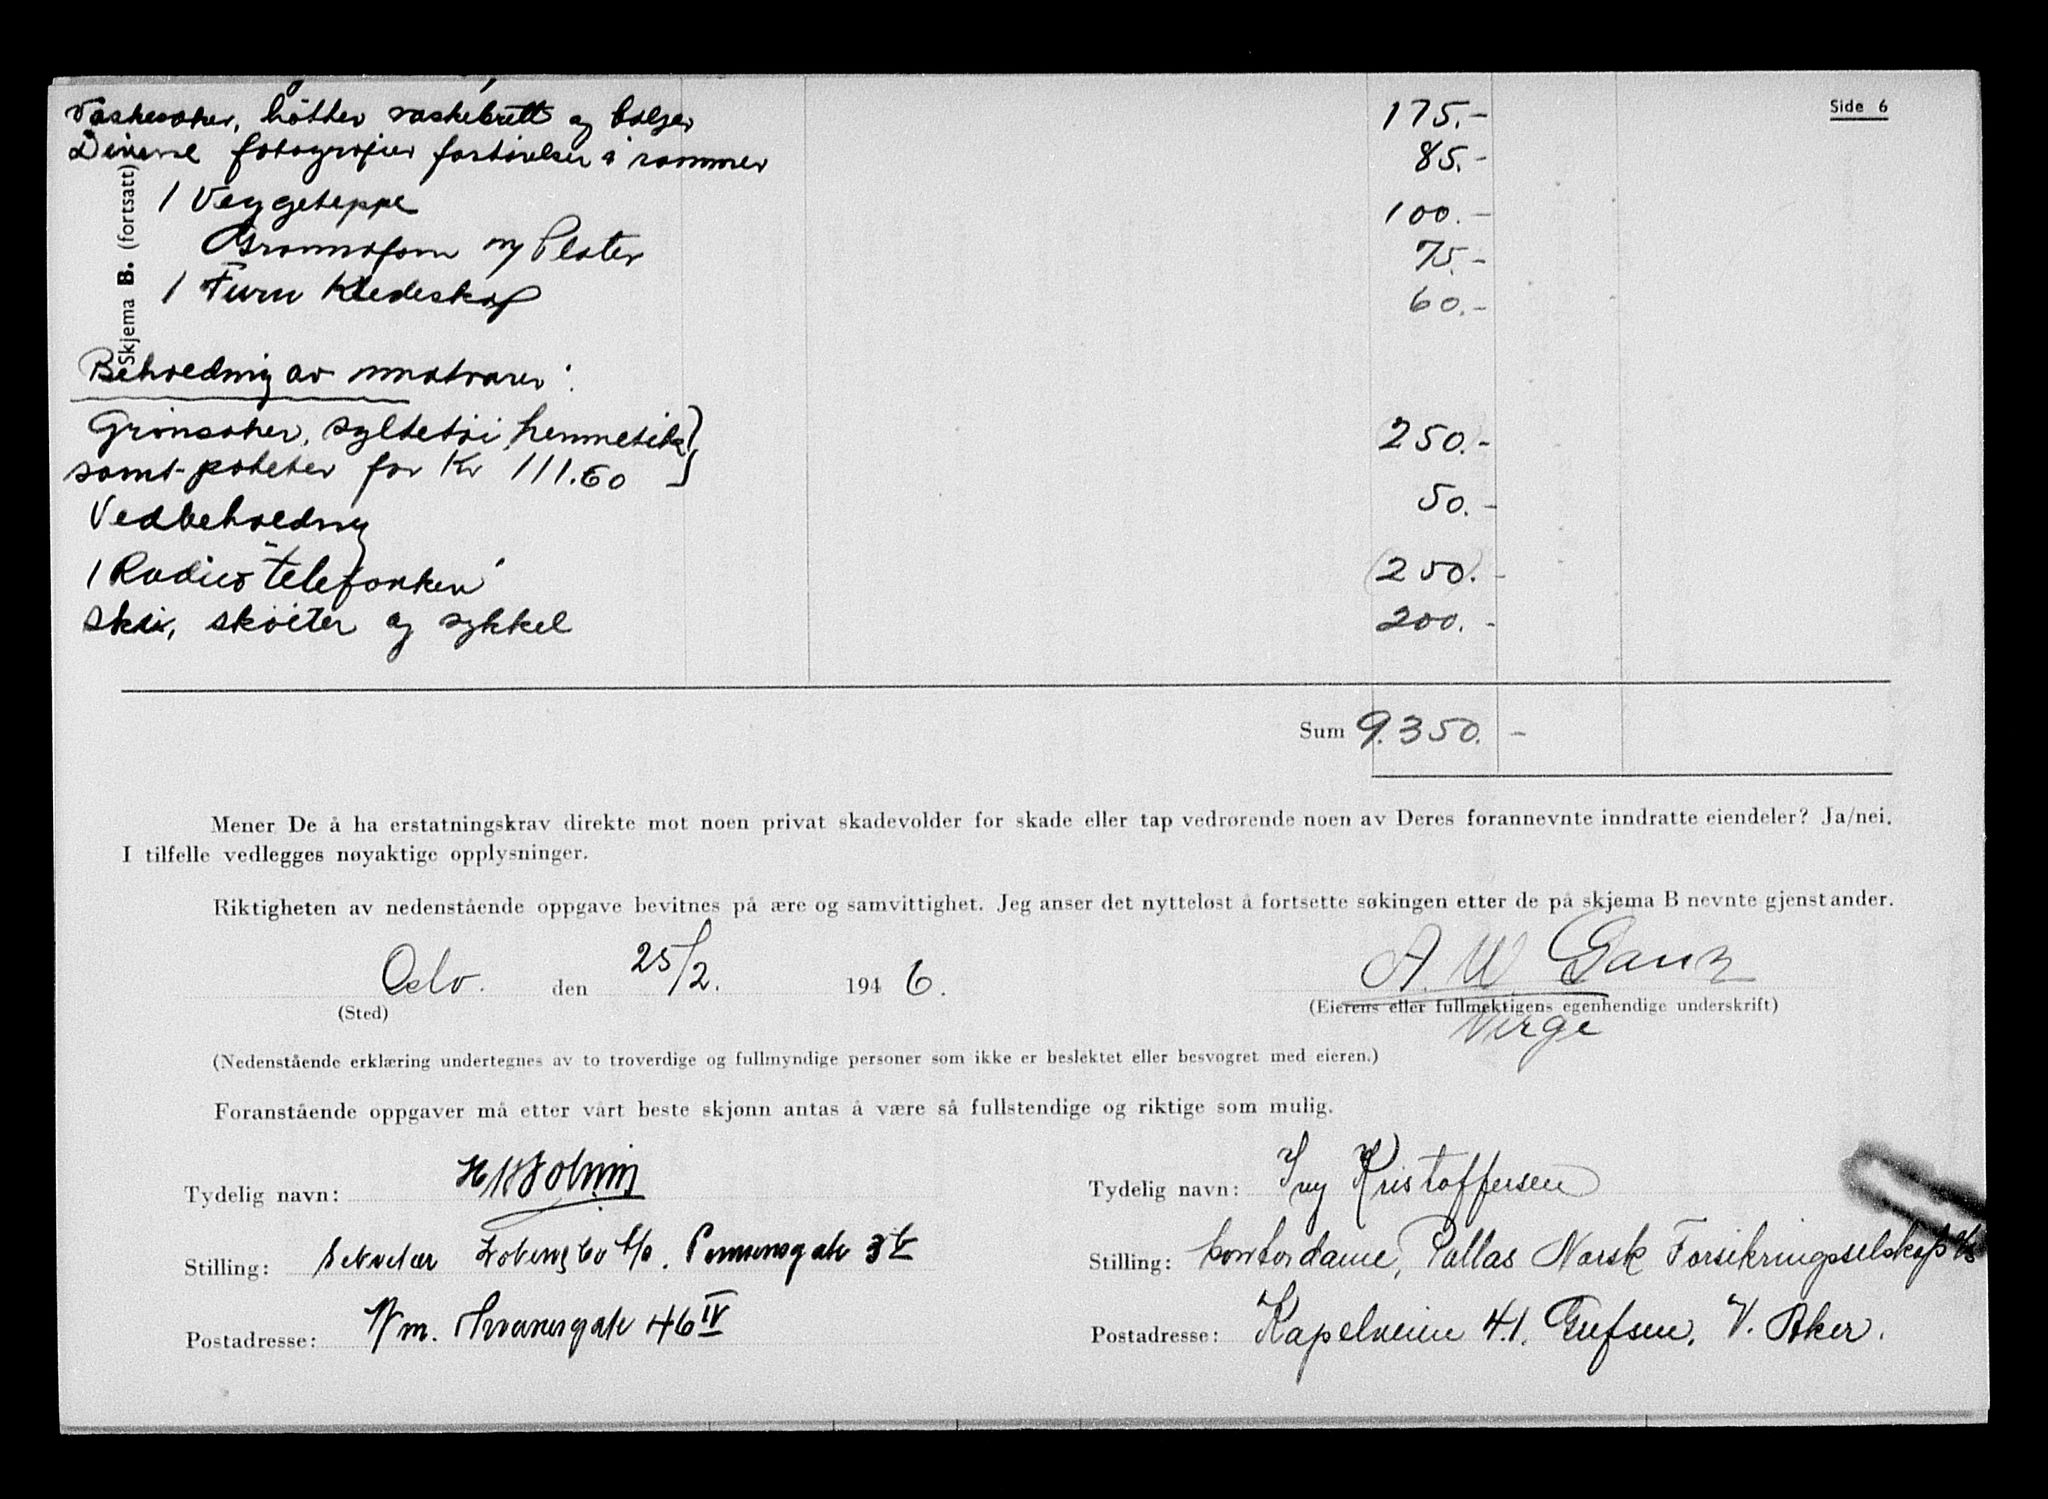 Side 6
Skjema B. (fortsatt)
Vaskesaker, bøtter vaskebrett og baljer 175.-
Diverse fotografier forstørrelser i rammer 85.-
1 Veggeteppe 100.-
Grammofon m/ Plater 75.-
1 Furu Kledeskap 60.-
Beholdning av matvarer:
Grønsaker, syltetøi hermetik } 250.-
samt poteter for Kr 111.60
Vedbeholdning 50.-
1 Radio "telefonken" (250).-
Ski, skøiter og sykkel 200.-
Sum 9.350.-
Mener De å ha erstatningskrav direkte mot noen privat skadevolder for skade eller tap vedrørende noen av Deres forannevnte inndratte eiendeler? Ja/nei.
I tilfelle vedlegges nøyaktige opplysninger.
Riktigheten av nedenstående oppgave bevitnes på ære og samvittighet. Jeg anser det nytteløst å fortsette søkingen etter de på skjema B nevnte gjenstander.
Oslo. den 25/2. 1946. A. W. Ganz
(Sted) (Eierens eller fullmektigens egenhendige underskrift)
Verge
(Nedenstående erklæring undertegnes av to troverdige og fullmyndige personer som ikke er beslektet eller besvogret med eieren.)
Foranstående oppgaver må etter vårt beste skjønn antas å være så fullstendige og riktige som mulig.
Tydelig navn: Tydelig navn: Kristoffersen
Stilling: Sekretær Stilling: kontordame, Pallas Norsk Forsikringsselskap A/S
Postadresse: 46 IV Postadresse: Kapelveien 41. Grefsen, V. Aker.